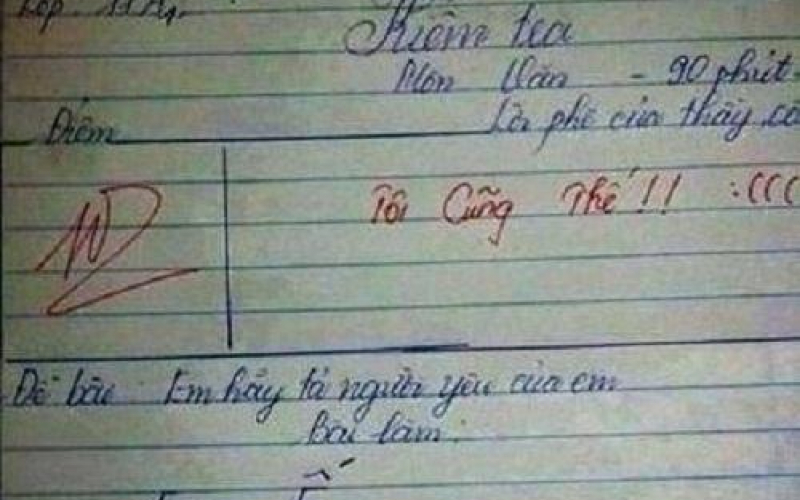 Lớp 11A1.
Kiểm tra
Môn Văn - 90 phút
Điểm
Lời phê của thầy, cô
10
Tôi Cũng Thế!! :(((
Đề bài: Em hãy tả người yêu của em
Bài làm: